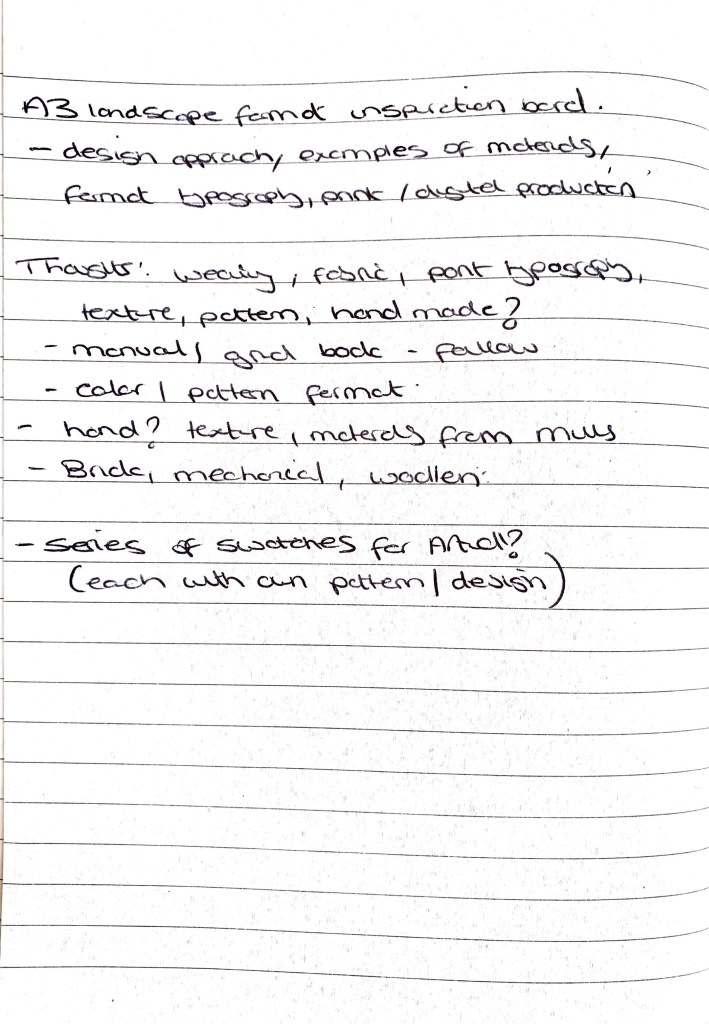 A3 landscape format inspiration board.
- design approach, examples of materials,
format typography, print / digital production
Thoughts: weaving, fabric, paint typography,
texture, pattern, hand made?
- manual / grid book - follow
- color / pattern format
- hand? texture, materials from mills
- Brick, mechanical, woollen
- series of swatches for
(each with own pattern / design)